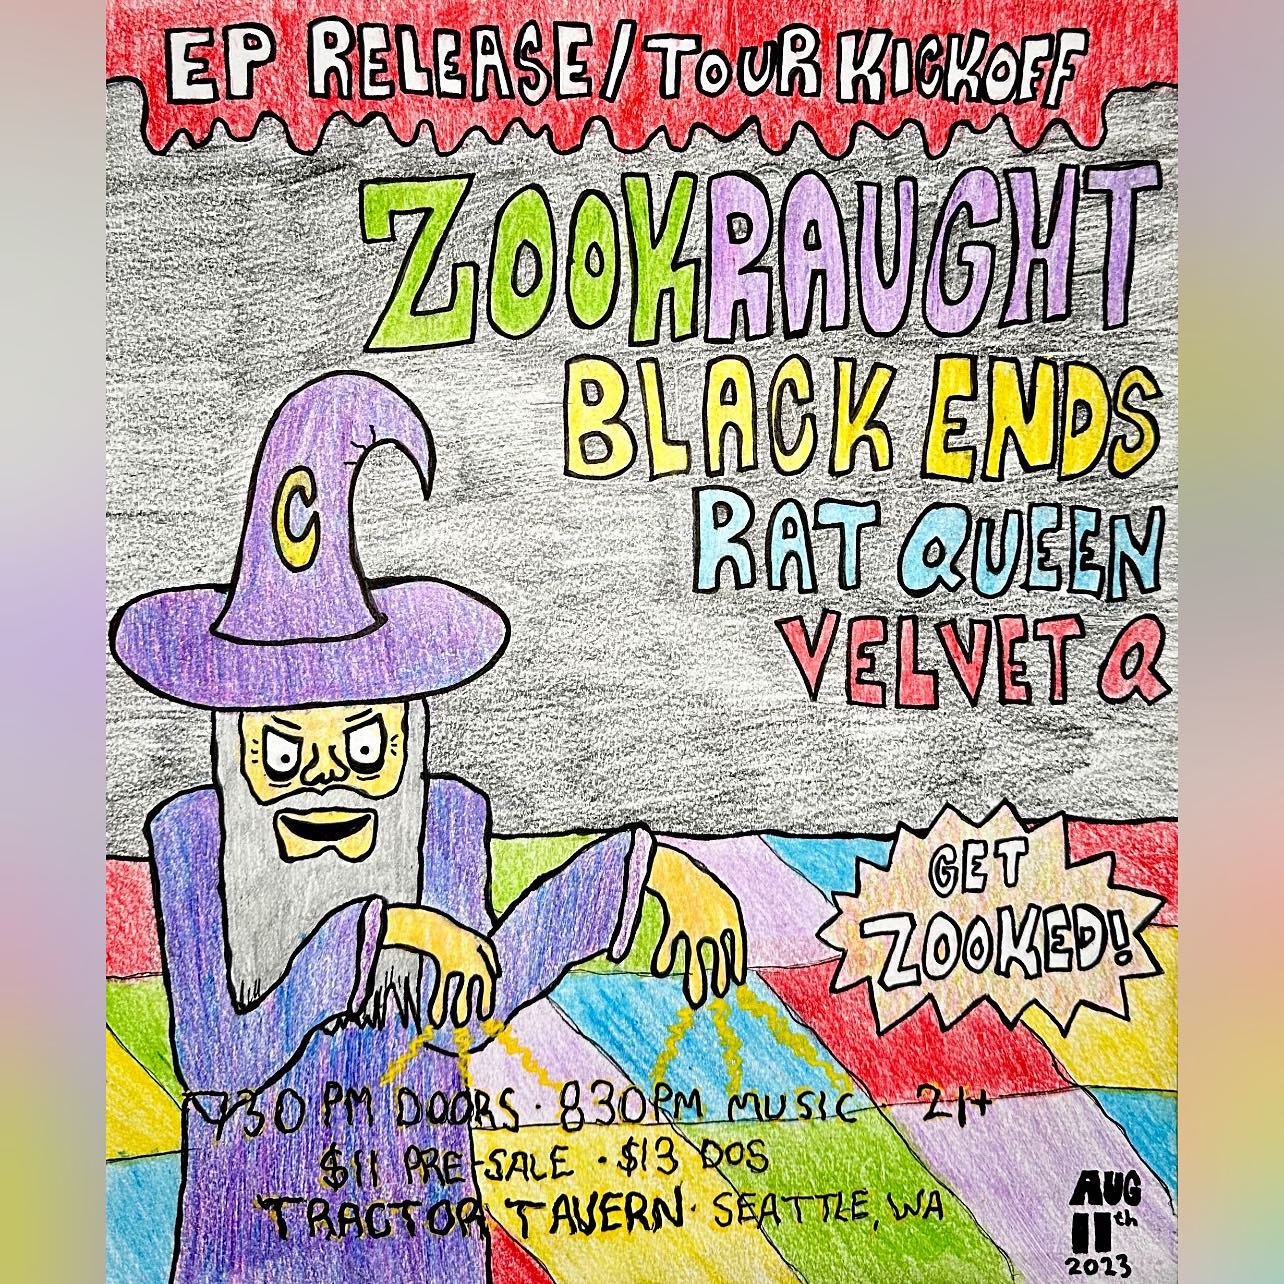 EP RELEASE/TOUR KICKOFF
ZOOKRAUGHT
BLACK ENDS
RAT QUEEN
VELVET Q
C
GET
ZOOKED!
730 PM DOORS · 830PM MUSIC · 21+
$11 PRE-SALE · $13 DOS
TRACTOR TAVERN · SEATTLE, WA
AUG
11th
2023